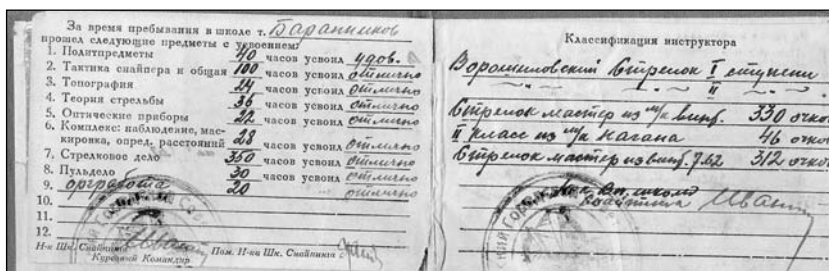 За время пребывания в школе т. Баранников
прошел следующие предметы с усвоением:
1. Политпредметы 40 часов усвоил удов.
2. Тактика снайпера и общая 100 часов усвоил отлично
3. Топография 24 часов усвоил отлично
4. Теория стрельбы 36 часов усвоил отлично
5. Оптические приборы 22 часов усвоил отлично
6. Комплекс: наблюдение, мас-
кировка, опред. расстояний 28 часов усвоил отлично
7. Стрелковое дело 350 часов усвоил отлично
8. Пульдело 30 часов усвоил отлично
9. оргработа 20 отлично
10.
11.
12.
Н-к Шк. Снайпинга
Курсовый Командир
Пом. Н-ка Шк. Снайпинга
Классификация инструктора
Ворошиловский Стрелок I ступени
" " II "
Стрелок мастер из м/к винт. 330 очков
II класс из м/к Нагана 46 очков
Стрелок мастер из винт. 7.62 312 очков
школы